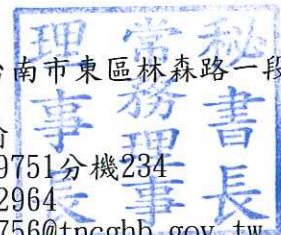 台南市東區林森路一段
9751分機234
2964
756@tncghb.gov.tw
秘書長
常務理事
理事長